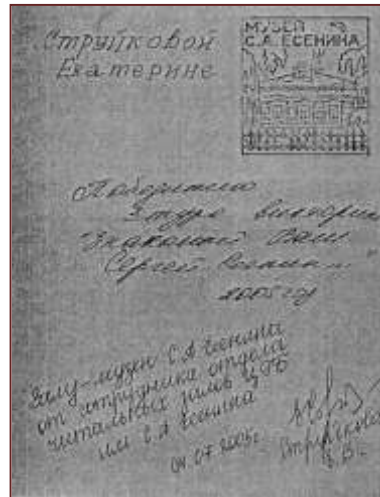 Струйковой
Екатерине
МУЗЕЙ
С.А. ЕСЕНИНА
Победителю
3 тура викторины
"Знакомый Ваш
Сергей Есенин"
2005 год
Дому-музею С.А. Есенина
от сотрудника отдела
читальных залов ЦГБ
им. С.А. Есенина
07 2005г.
Струйкова